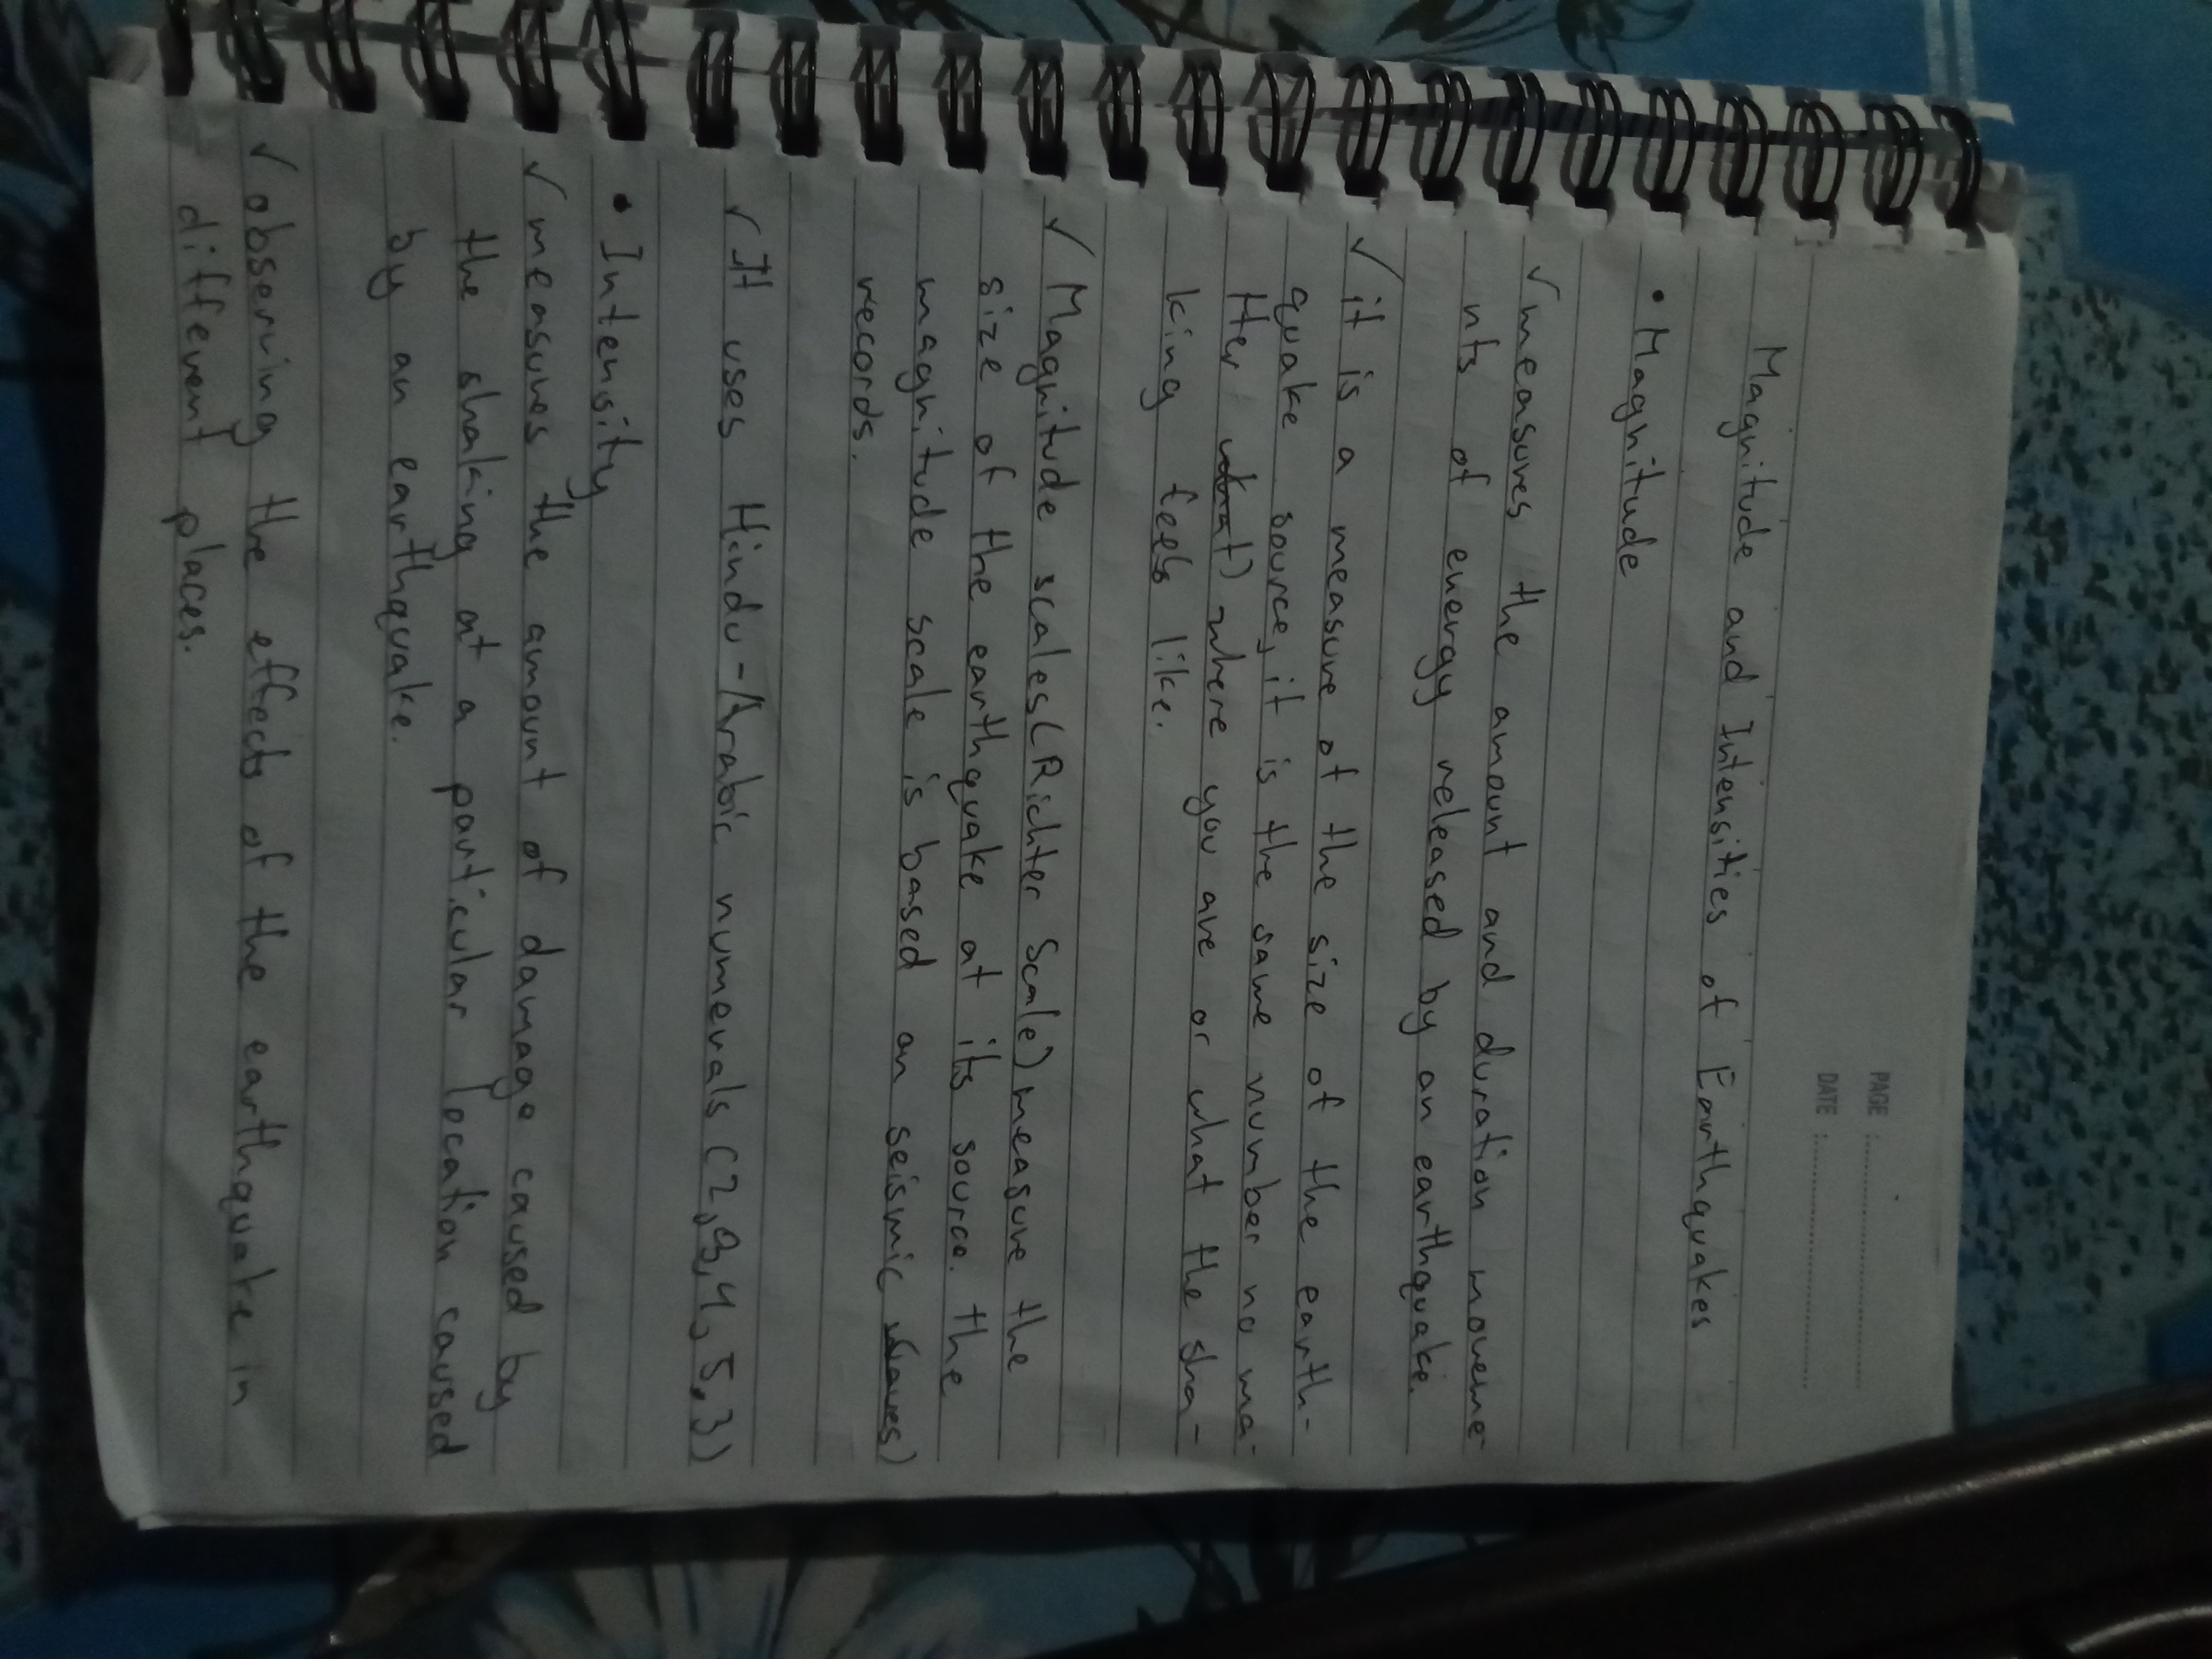 PAGE :
DATE :
Magnitude and Intensities of Earthquakes
• Magnitude
✓ measures the amount and duration moveme-
nts of energy released by an earthquake.
✓ it is a measure of the size of the earth-
quake source, it is the same number no ma-
tter where you are or what the sha-
king feels like.
✓ Magnitude scales (Richter Scale) measure the
size of the earthquake at its source. the
magnitude scale is based on seismic
records.
✓ It uses Hindu-Arabic numerals (2,8,4,5,3)
• Intensity
✓ measures the amount of damage caused by
the shaking at a particular location caused
by an earthquake.
✓ observing the effects of the earthquake in
different places.